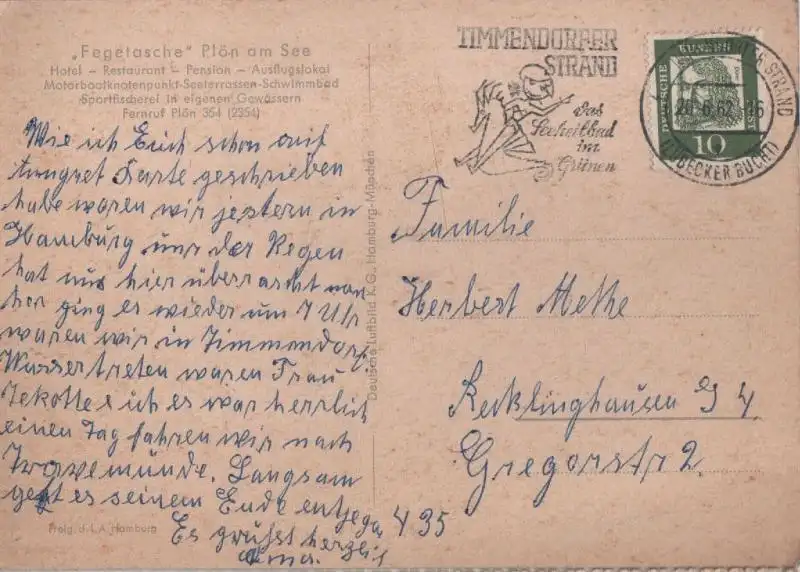 „Fegetasche" Plön am See
Hotel – Restaurant – Pension – Ausflugslokal
Motorbootknotenpunkt-Seeterrassen-Schwimmbad
Sportfischerei in eigenen Gewässern
Fernruf Plön 354 (2354)
Wie ich Euch schon auf
Karte geschrieben
habe waren wir jestern in
Hamburg nur der Regen
hat uns hier überrascht von
her ging es wieder um 7 Uhr
waren wir in Timmendorf.
Wassertreten waren Frau
Jekotte u ich es war herrlich
einen Tag fahren wir nach
Travemünde. Langsam
geht es seinem Ende entjegen
Es grüsst herzlich
Oma.
435
Freig. d. L.A. Hamburg
Deutsche Luftbild K.G., Hamburg-München
TIMMENDORFER
STRAND
Das
Seeheilbad
im
Grünen
STRAND
20.6.62
(LÜBECKER BUCHT)
DEUTSCHE
BUNDESPOST
10
Familie
Herbert Methe
Recklinghausen S 4
Gregorstr 2.